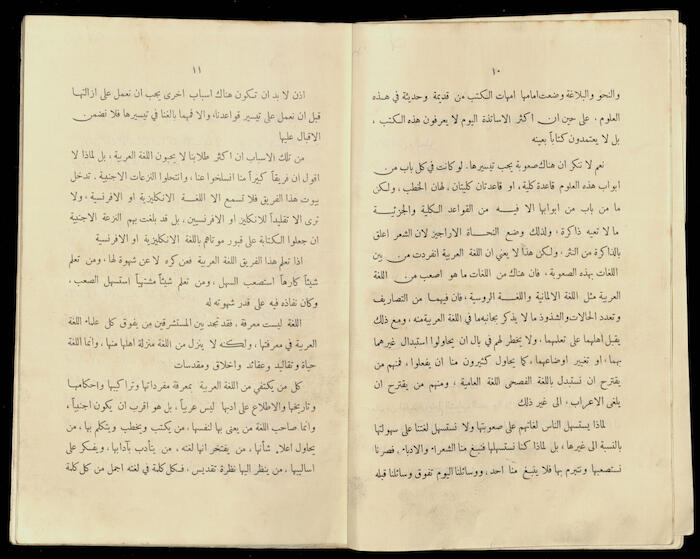 ١٠
والنحو والبلاغة وضعت امامها امهات الكتب من قديمة وحديثة في هذه
العلوم، على حين ان اكثر الاساتذة اليوم لا يعرفون هذه الكتب،
بل لا يعتمدون كتاباً بعينه
نعم لا ننكر ان هناك صعوبة يجب تيسيرها. لو كانت في كل باب من
ابواب هذه العلوم قاعدة كلية، او قاعدتان كليتان، لهان الخطب، ولكن
ما من باب من ابوابها الا فيه من القواعد الكلية والجزئية
ما لا تعيه ذاكرة، ولذلك وضع النحاة الاراجيز لان الشعر اعلق
بالذاكرة من النثر. ولكن هذا لا يعني ان اللغة العربية انفردت من بين
اللغات بهذه الصعوبة، فان هناك من اللغات ما هو اصعب من اللغة
العربية مثل اللغة الالمانية واللغة الروسية، فان فيهما من التصاريف
وتعدد الحالات والشذوذ ما لا يذكر بجانبه ما في اللغة العربية منه، ومع ذلك
يقبل اهلهما على تعلمهما، ولا يخطر لهم في بال ان يحاولوا استبدال غيرهما
بهما، او تغيير اوضاعهما، كما يحاول كثيرون منا ان يفعلوا، فمنهم من
يقترح ان نستبدل باللغة الفصحى اللغة العامية، ومنهم من يقترح ان
يلغى الاعراب، الى غير ذلك
لماذا يستسهل الناس لغاتهم على صعوبتها ولا نستسهل لغتنا على سهولتها
بالنسبة الى غيرها، بل لماذا كنا نستسهلها فنبغ منا الشعراء والادباء، فصرنا
نستصعبها ونتبرم بها فلا ينبغ منا احد، ووسائلنا اليوم تفوق وسائلنا قبله
١١
اذن لا بد ان تكون هناك اسباب اخرى يجب ان نعمل على ازالتها
قبل ان نعمل على تيسير قواعدنا، والا فمهما بالغنا في تيسيرها فلا نضمن
الاقبال عليها
من تلك الاسباب ان اكثر طلابنا لا يحبون اللغة العربية، بل لماذا لا
اقول ان فريقاً كبيراً منا انسلخوا عنا، وانتحلوا النزعات الاجنبية. تدخل
بيوت هذا الفريق فلا تسمع الا اللغة الانكليزية او الافرنسية، ولا
ترى الا تقليداً للانكليز او الافرنسيين، بل قد بلغت بهم النزعة الاجنبية
ان جعلوا الكتابة على قبور موتاهم باللغة الانكليزية او الافرنسية
اذا تعلم هذا الفريق اللغة العربية فعن كره لا عن شهوة لها، ومن تعلم
شيئاً كارهاً استصعب السهل، ومن تعلم شيئاً مشتهياً استسهل الصعب،
وكان نفاذه فيه على قدر شهوته له
اللغة ليست معرفة، فقد تجد بين المستشرقين من يفوق كل علماء اللغة
العربية في معرفتها، ولكنه لا ينزل من اللغة منزلة اهلها منها، وانما اللغة
حياة وتقاليد وعقائد واخلاق ومقدسات
كل من يكتفي من اللغة العربية بمعرفة مفرداتها وتراكيبها واحكامها
وتاريخها والاطلاع على ادبها ليس عربياً، بل هو اقرب ان يكون اجنبياً،
وانما صاحب اللغة من يعنى بها لنفسها، من يكتب ويخطب ويتكلم بها، من
يحاول اعلاء شأنها، من يفتخر انها لغته، من يتأدب بآدابها، ويفكر على
اساليبها، من ينظر اليها نظرة تقديس. فكل كلمة في لغته اجمل من كل كلمة